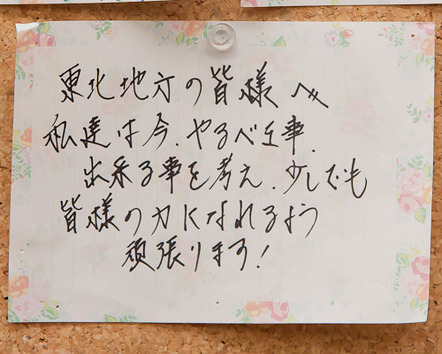 東北地方の皆様へ
私達は今、やるべき事、
出来る事を考え、少しでも
皆様の力になれるよう
頑張ります!